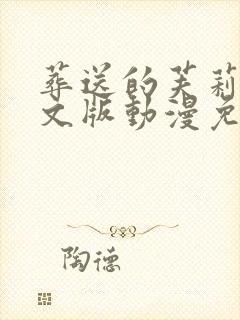 葬送的芙莉
文版動漫免
陶德